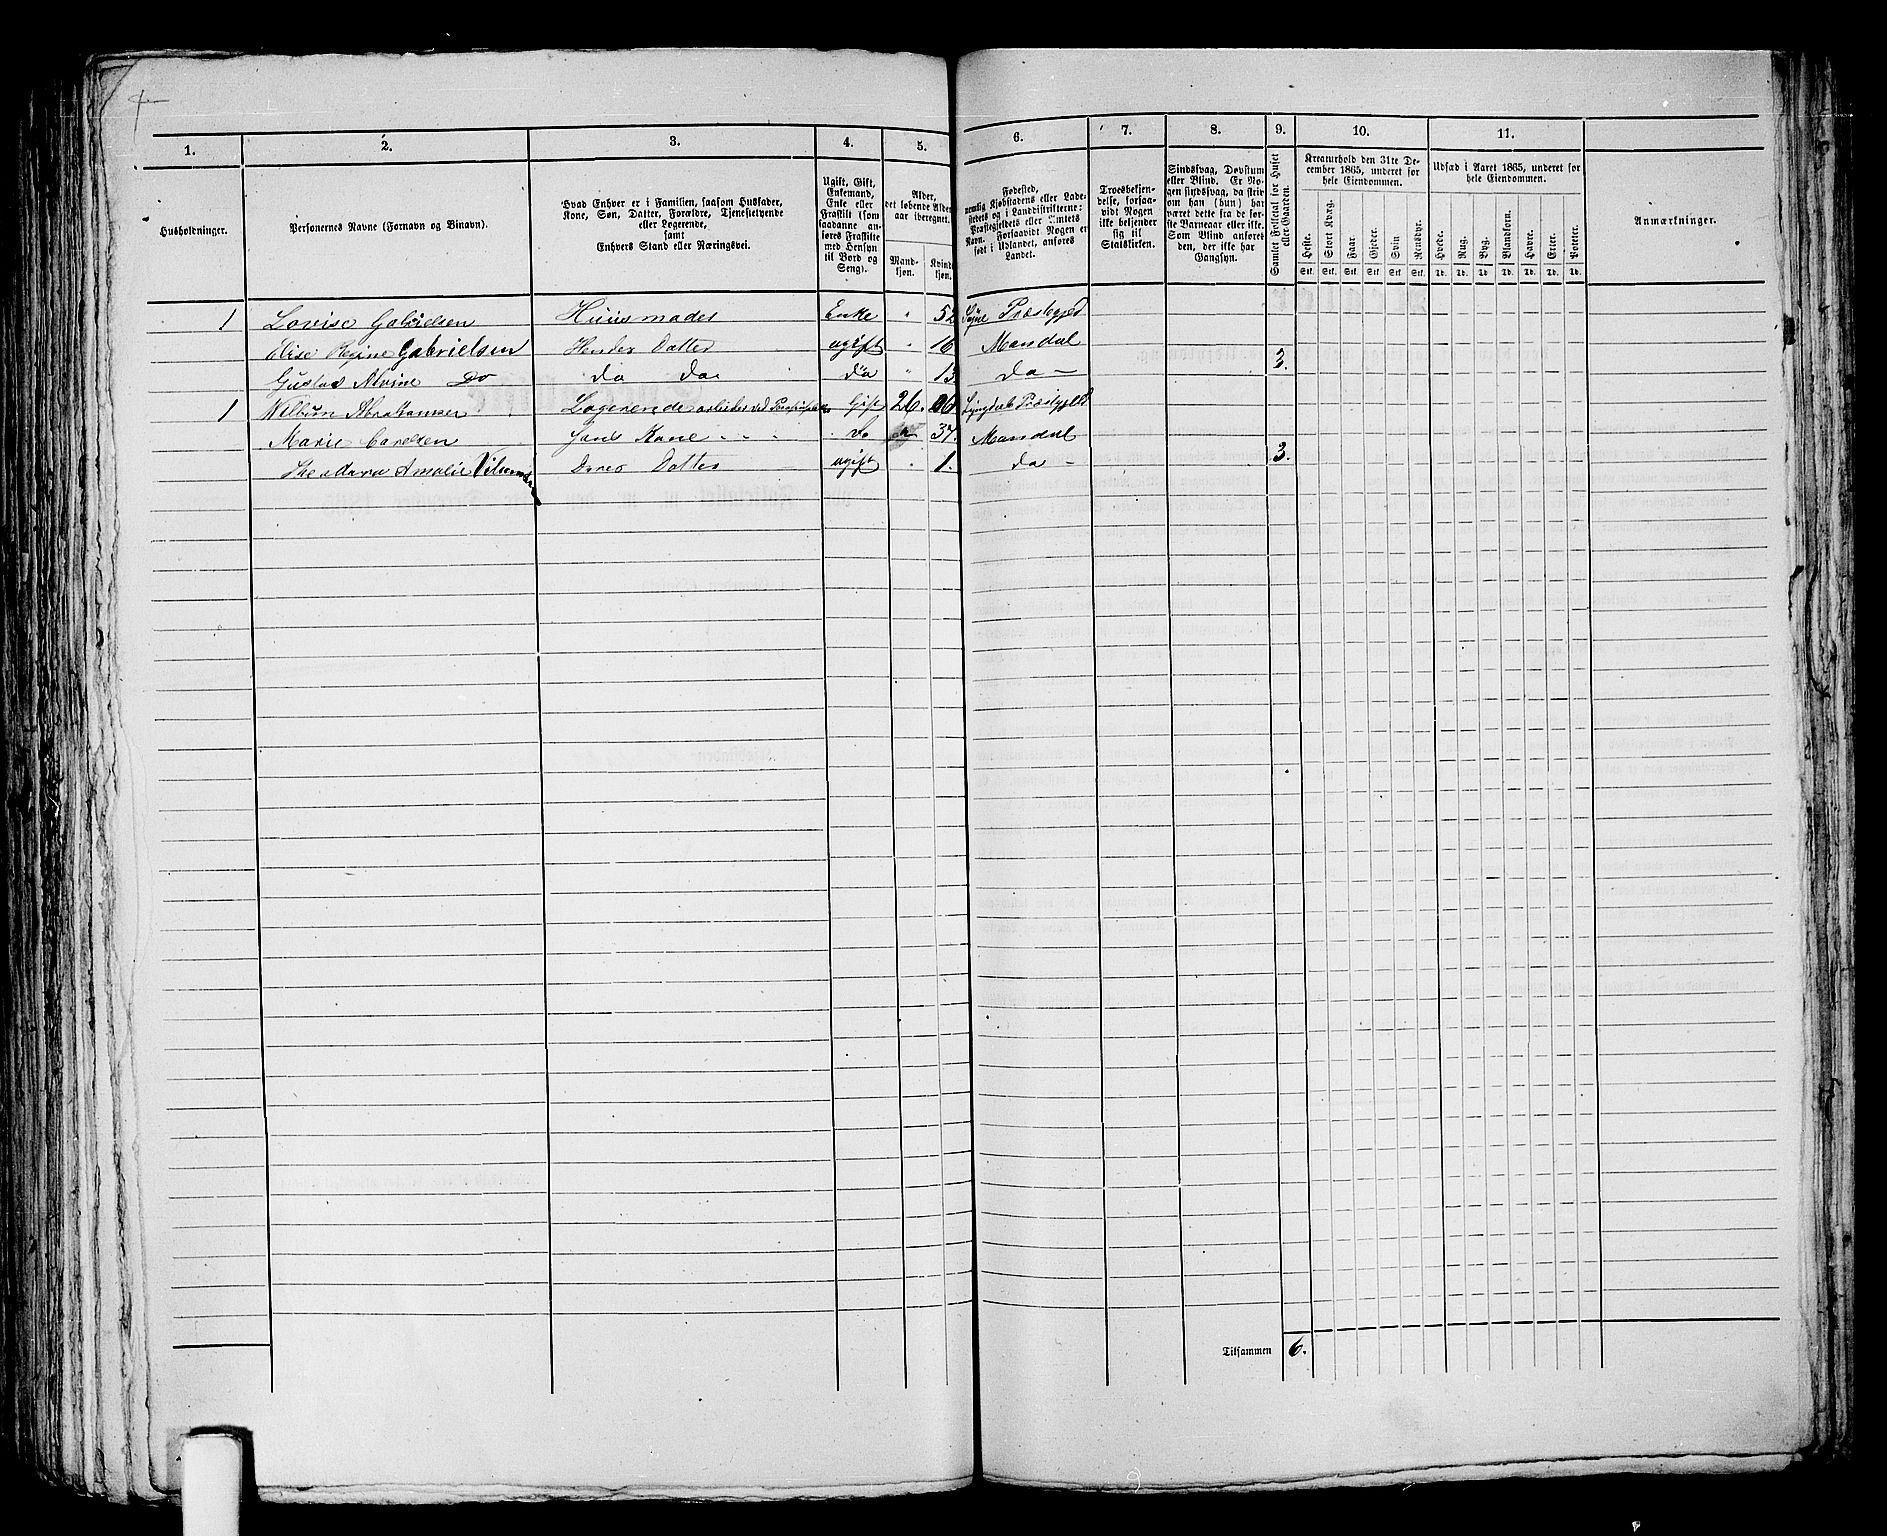 1. 2. 3. 4. 5. 6. 7. 8. 9. 10. 11.
Husholdninger.
Personernes Navne (Fornavn og Binavn).
Hvad Enhver er i Familien, saasom Husfader,
Kone, Søn, Datter, Forældre, Tjenestetyende
eller Logerende,
samt
Enhvers Stand eller Næringsvei.
Ugift, Gift,
Enkemand,
Enke eller
Fraskilt (som
saadanne an-
føres Fraskilte
med Hensyn
til Bord og
Seng).
Alder,
det løbende Alders-
aar iberegnet.
Mand-
kjøn.
Kvinde-
kjøn.
Fødested,
nemlig Kjøbstadens eller Lade-
stedets og i Landdistrikterne:
Præstegjeldets eller Amtets
Navn. Forsaavidt Nogen er
født i Udlandet, anføres
Landet.
Troesbekjen-
delse, forsaa-
vidt Nogen
ikke bekjender
sig til
Statskirken.
Sindssvag, Døvstum
eller Blind. Er No-
gen sindssvag, da skri-
ves om han (hun) har
været dette fra de før-
ste Barneaar eller ikke.
Som Blind anføres
den, der ikke har
Gangsyn.
Samlet Folketal for Huset
eller Gaarden.
Kreaturhold den 31te De-
cember 1865, underet for
hele Eiendommen.
Heste. Stort Kvæg. Faar. Gjeder. Svin. Rensdyr.
Stk. Stk. Stk. Stk. Stk. Stk.
Udsæd i Aaret 1865, underet for
hele Eiendommen.
Hvede. Rug. Byg. Blandkorn. Havre. Erter. Poteter.
Td. Td. Td. Td. Td. Td. Td.
Anmærkninger.
1 Lovise Gabrielsen Huusmoder Enke " 52 Præstegjed
Elise Regine Gabrielsen Hendes Datter ugift " 16 Mandal
Gustas Alvine Do do do do " 13 do - 3.
1 Abrahamsen Logerende arbeider ved Gift 26. Lyngdals Præstegjeld
Marie Carelsen Hans Kone do 37. Mandal
Theodora Amalie Deres Datter ugift " 1. do - 3.
Tilsammen 6.